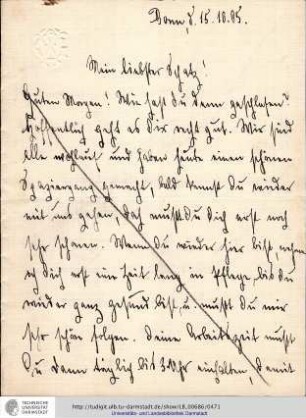 Bonn, d. 15.10.95.
Mein liebster Schatz!
Guten Morgen! Wie hast Du denn geschlafen?
Hoffentlich geht es Dir recht gut. Wir sind
alle wohlauf und haben heute einen schönen
Spaziergang gemacht, bald kannst Du wieder
mit uns gehen, doch mußt Du Dich erst noch
sehr schonen. Wenn Du wieder hier bist, nehme
ich Dich erst eine Zeit lang in Pflege, bis Du
wieder ganz gesund bist, u. mußt Du mir
sehr schön folgen. Deine Arbeitszeit mußt
Du dann täglich bis 3 Uhr einhalten, damit
TECHNISCHE
UNIVERSITÄT
DARMSTADT
http://tudigit.ulb.tu-darmstadt.de/show/LB_00686/0471
Universitäts- und Landesbibliothek Darmstadt
ULB